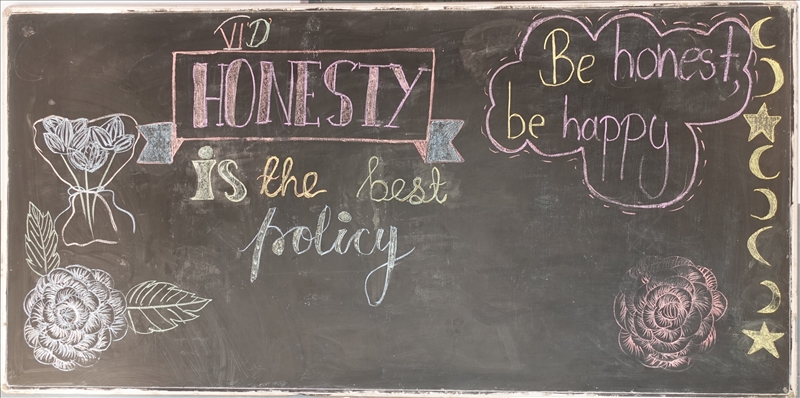 VI D
HONESTY
is the best
policy
Be honest,
be happy